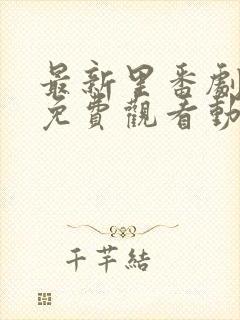 最新里番劇
免費觀看動
千芊結